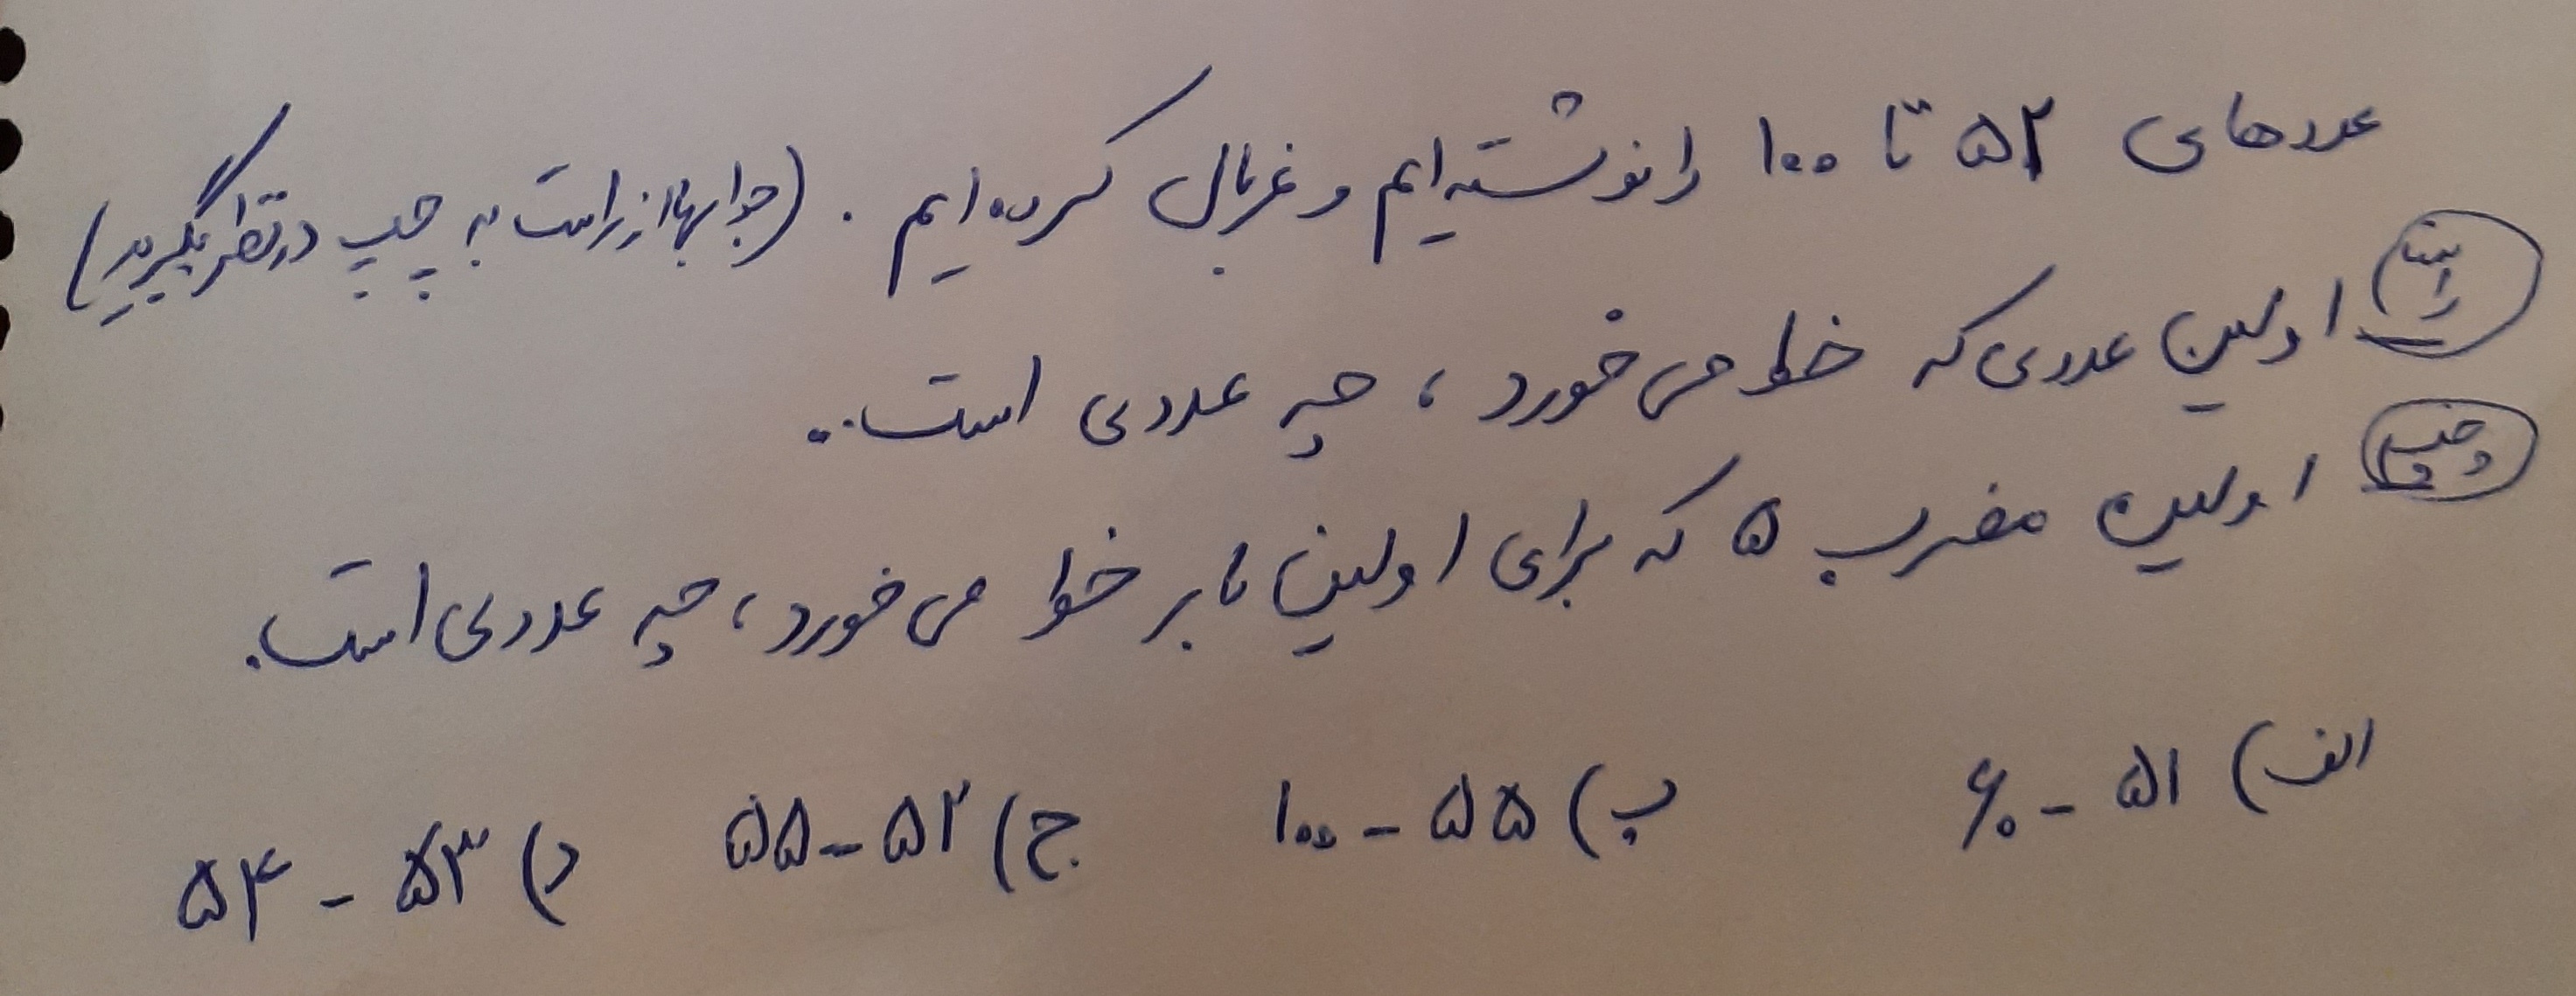 عددهای ۵۲ تا ۱۰۰ را نوشته‌ایم و غربال کرده‌ایم. (جوابها از راست به چپ در نظر بگیرید)
راست اولین عددی که خط می‌خورد، چه عددی است..
چپ اولین مضرب ۵ که برای اولین بار خط می‌خورد، چه عددی است.
الف) ۵۱ - ۶۰ ب) ۵۵ - ۱۰۰ ج) ۵۲ - ۵۵ د) ۵۳ - ۵۴